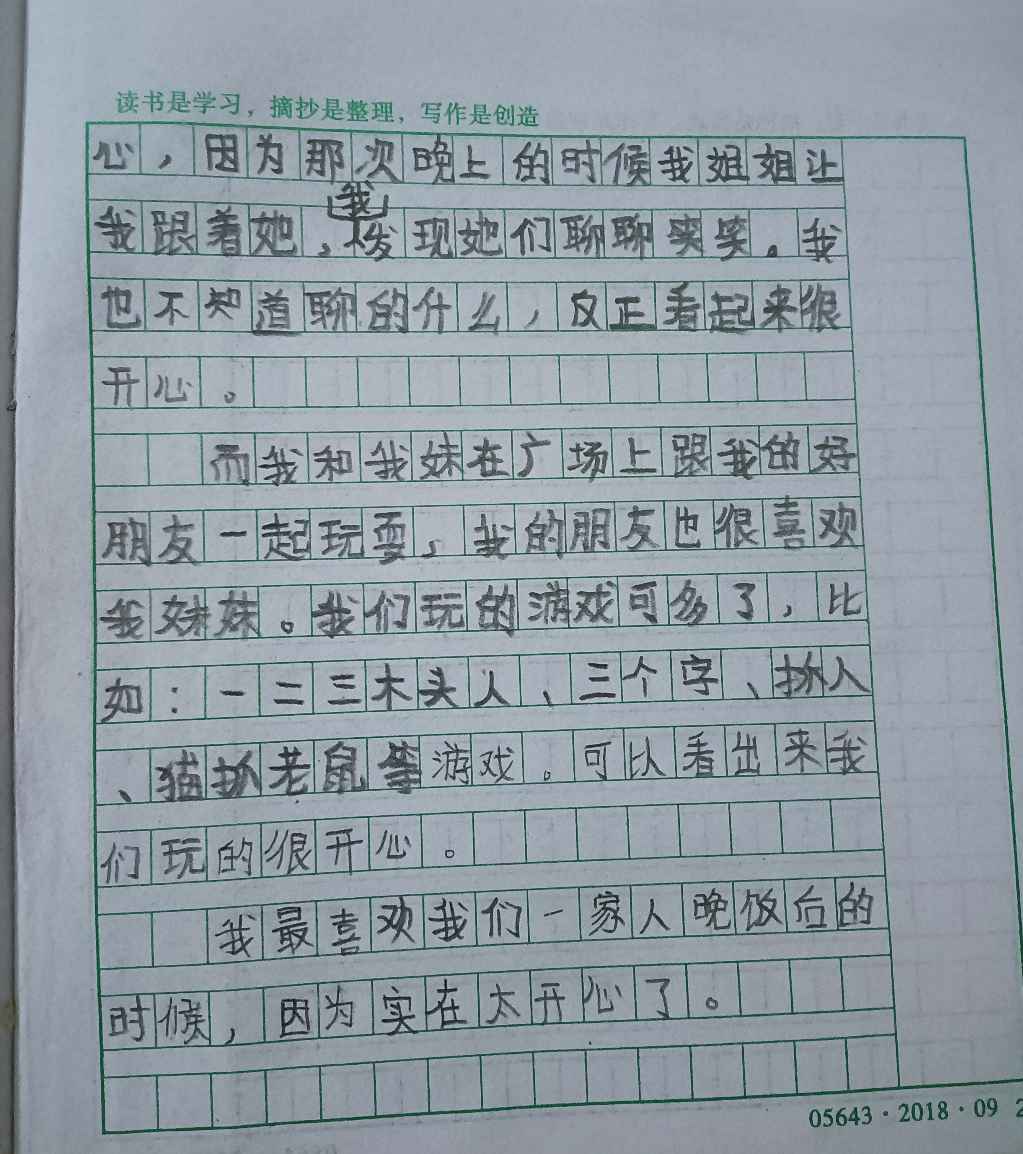 读书是学习，摘抄是整理，写作是创造
心，因为那次晚上的时候我姐姐让
我跟着她，我发现她们聊聊笑笑。我
也不知道聊的什么，反正看起来很
开心。
而我和我妹在广场上跟我的好
朋友一起玩耍，我的朋友也很喜欢
我妹妹。我们玩的游戏可多了，比
如：一二三木头人、三个字、抓人
、猫抓老鼠等游戏。可以看出来我
们玩的很开心。
我最喜欢我们一家人晚饭后的
时候，因为实在太开心了。
05643·2018·09 2